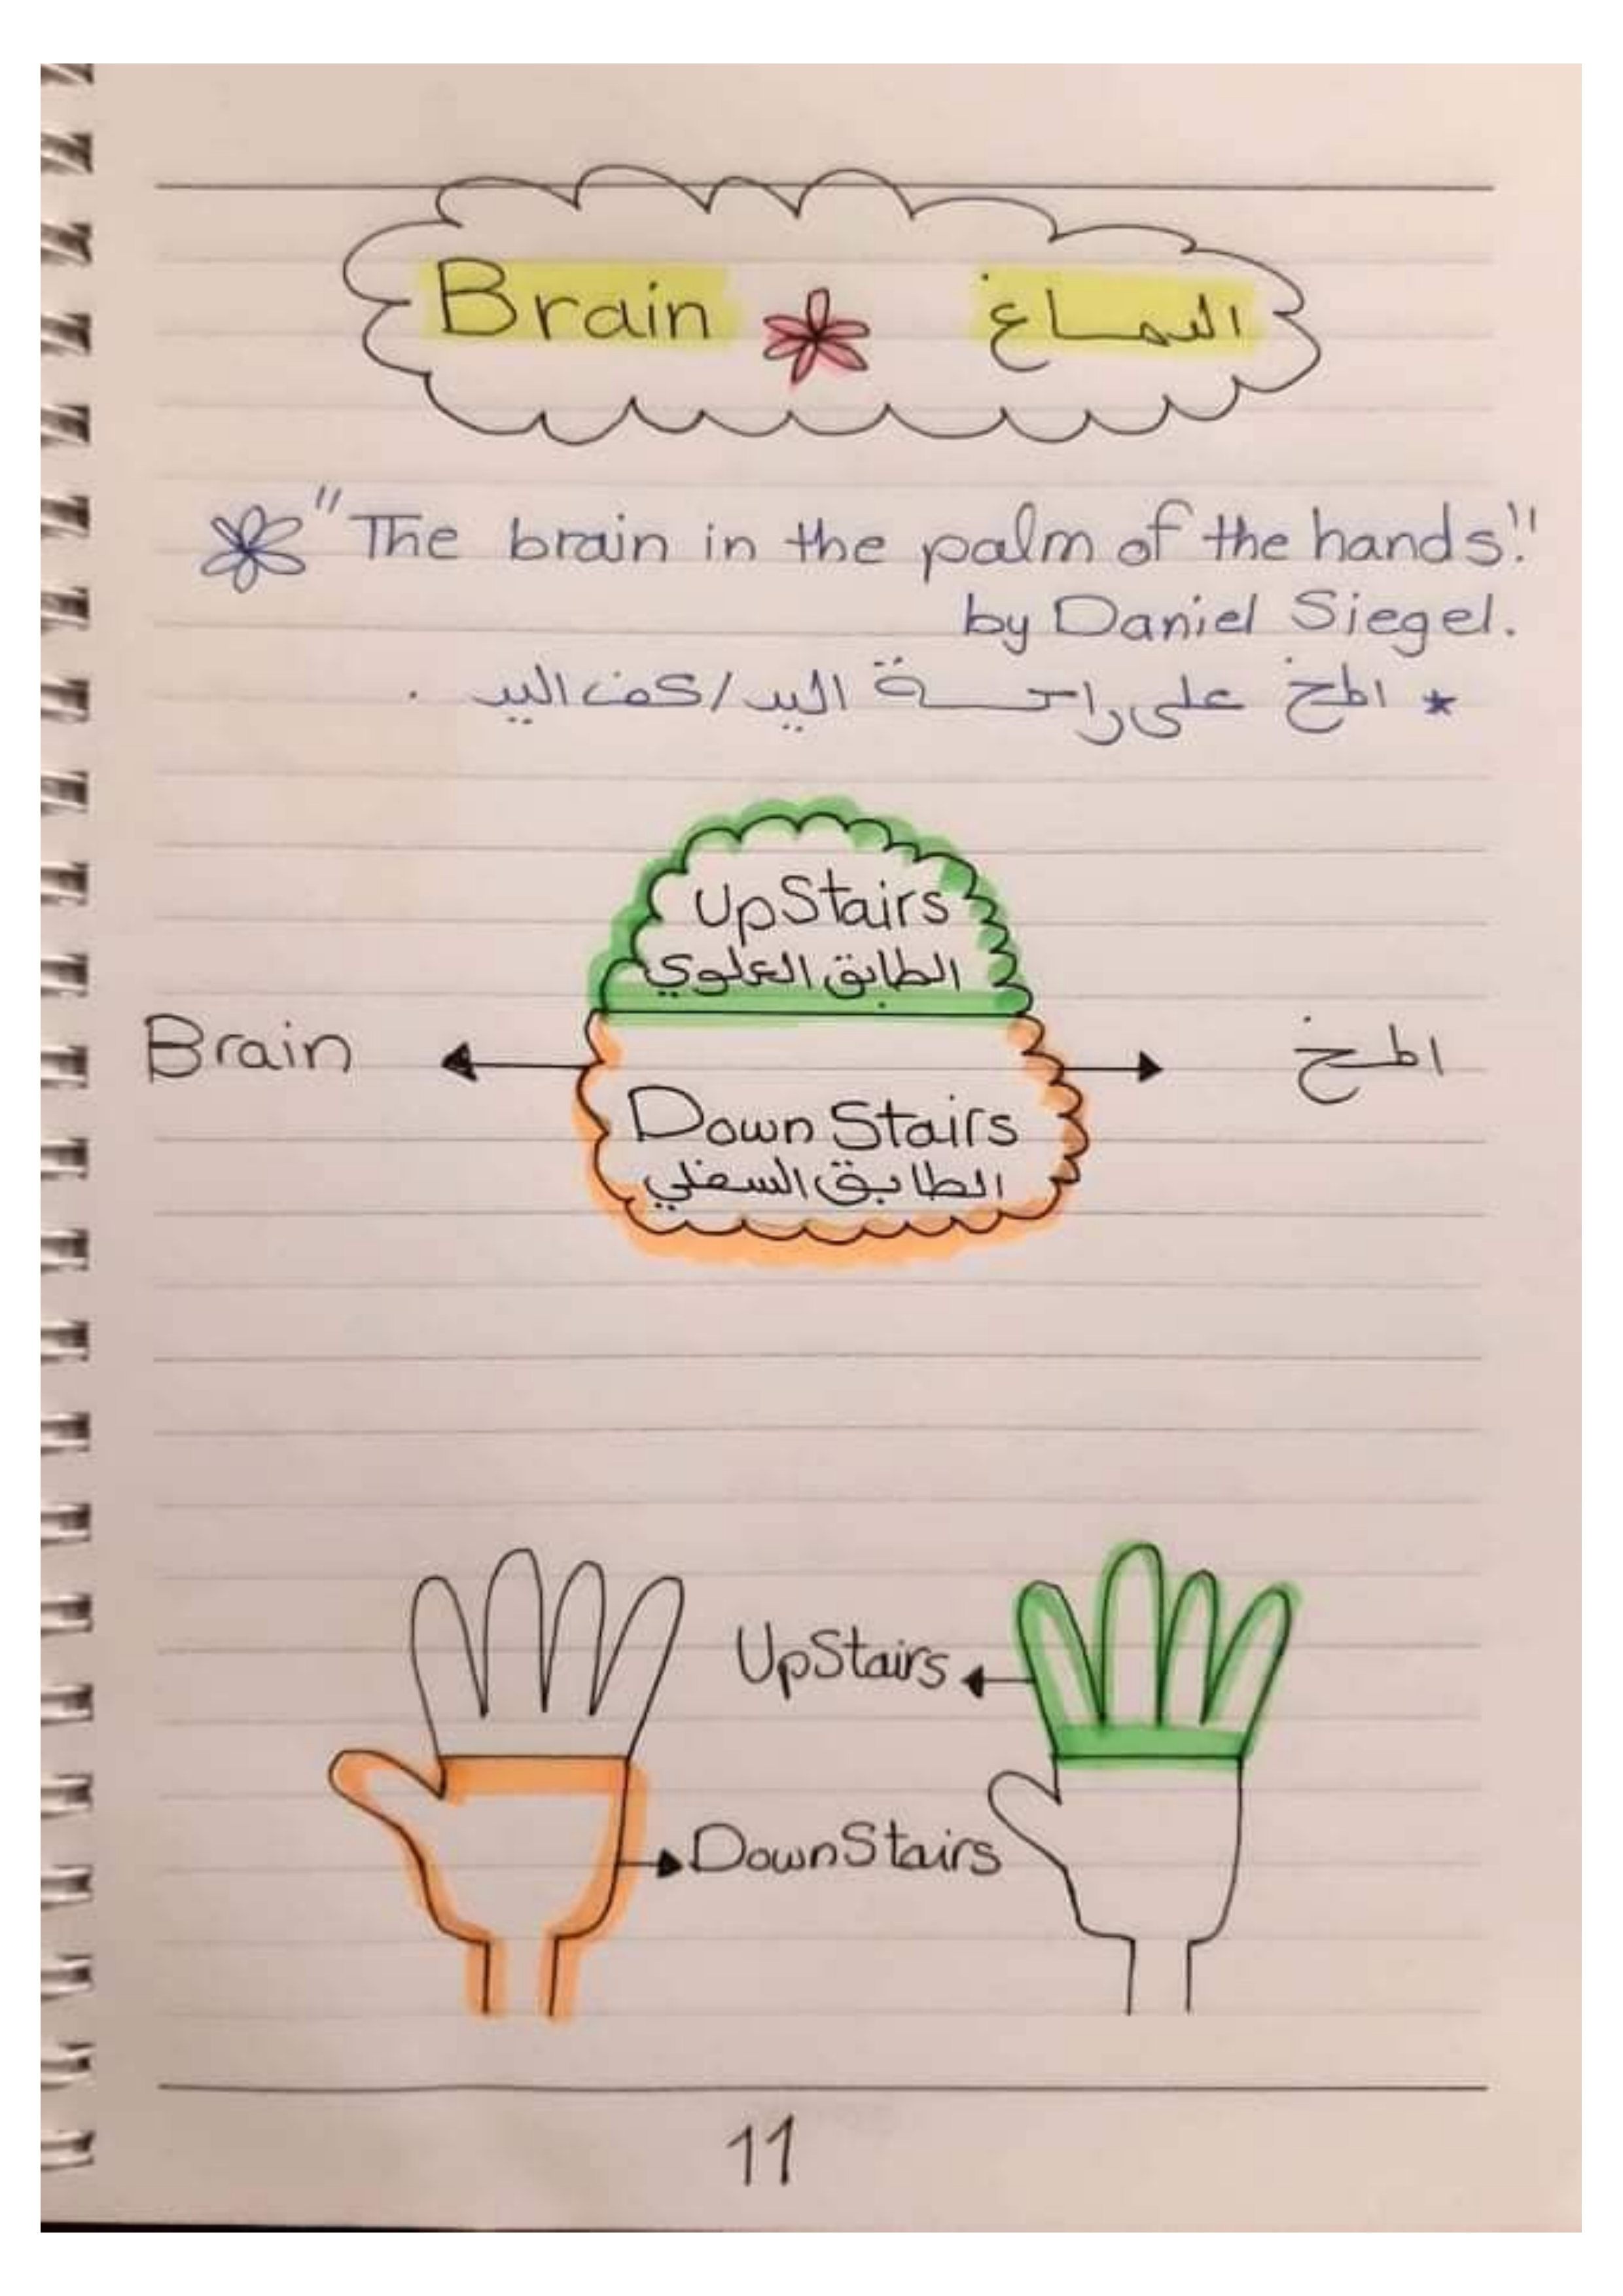 Brain الدماغ
"The brain in the palm of the hands."
by Daniel Siegel.
* المخ على راحة اليد/كف اليد .
UpStairs
الطابق العلوي
Brain المخ
Down Stairs
الطابق السفلي
UpStairs
DownStairs
11